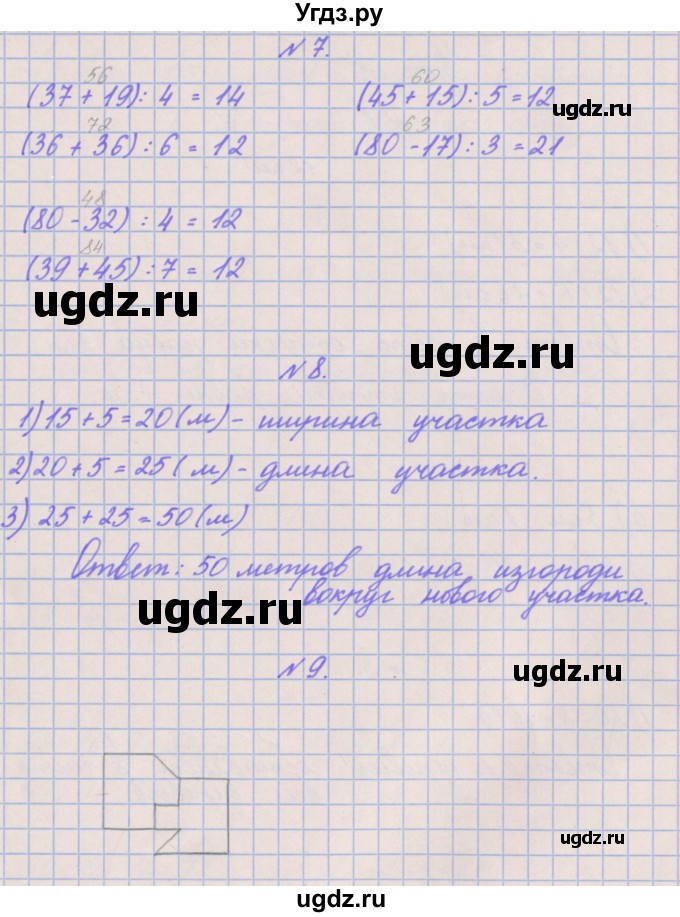 Угдз.ру
N 7.
56
60
(37 + 19) : 4 = 14
(45 + 15) : 5 = 12
ugdz.ru
72
63
(36 + 36) : 6 = 12
(80 - 17) : 3 = 21
48
(80 - 32) : 4 = 12
84
(39 + 45) : 7 = 12
ugdz.ru
ugdz.ru
N 8.
1) 15 + 5 = 20 (м) - ширина участка
2) 20 + 5 = 25 (м) - длина участка.
3) 25 + 25 = 50 (м)
Ответ: 50 метров длина изгороди
вокруг нового участка.
ugdz.ru
N 9.
ugdz.ru
ugdz.ru
ugdz.ru